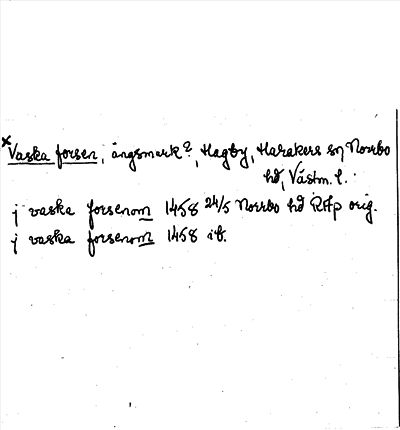 × Vaska forsen, ängsmark?, Hagby, Harakers sn, Norrbo
hd, Västm. l.
j vaska forsenom 1458 24/5 Norrbo hd RAp orig.
j vaska forsenom 1458 ib.